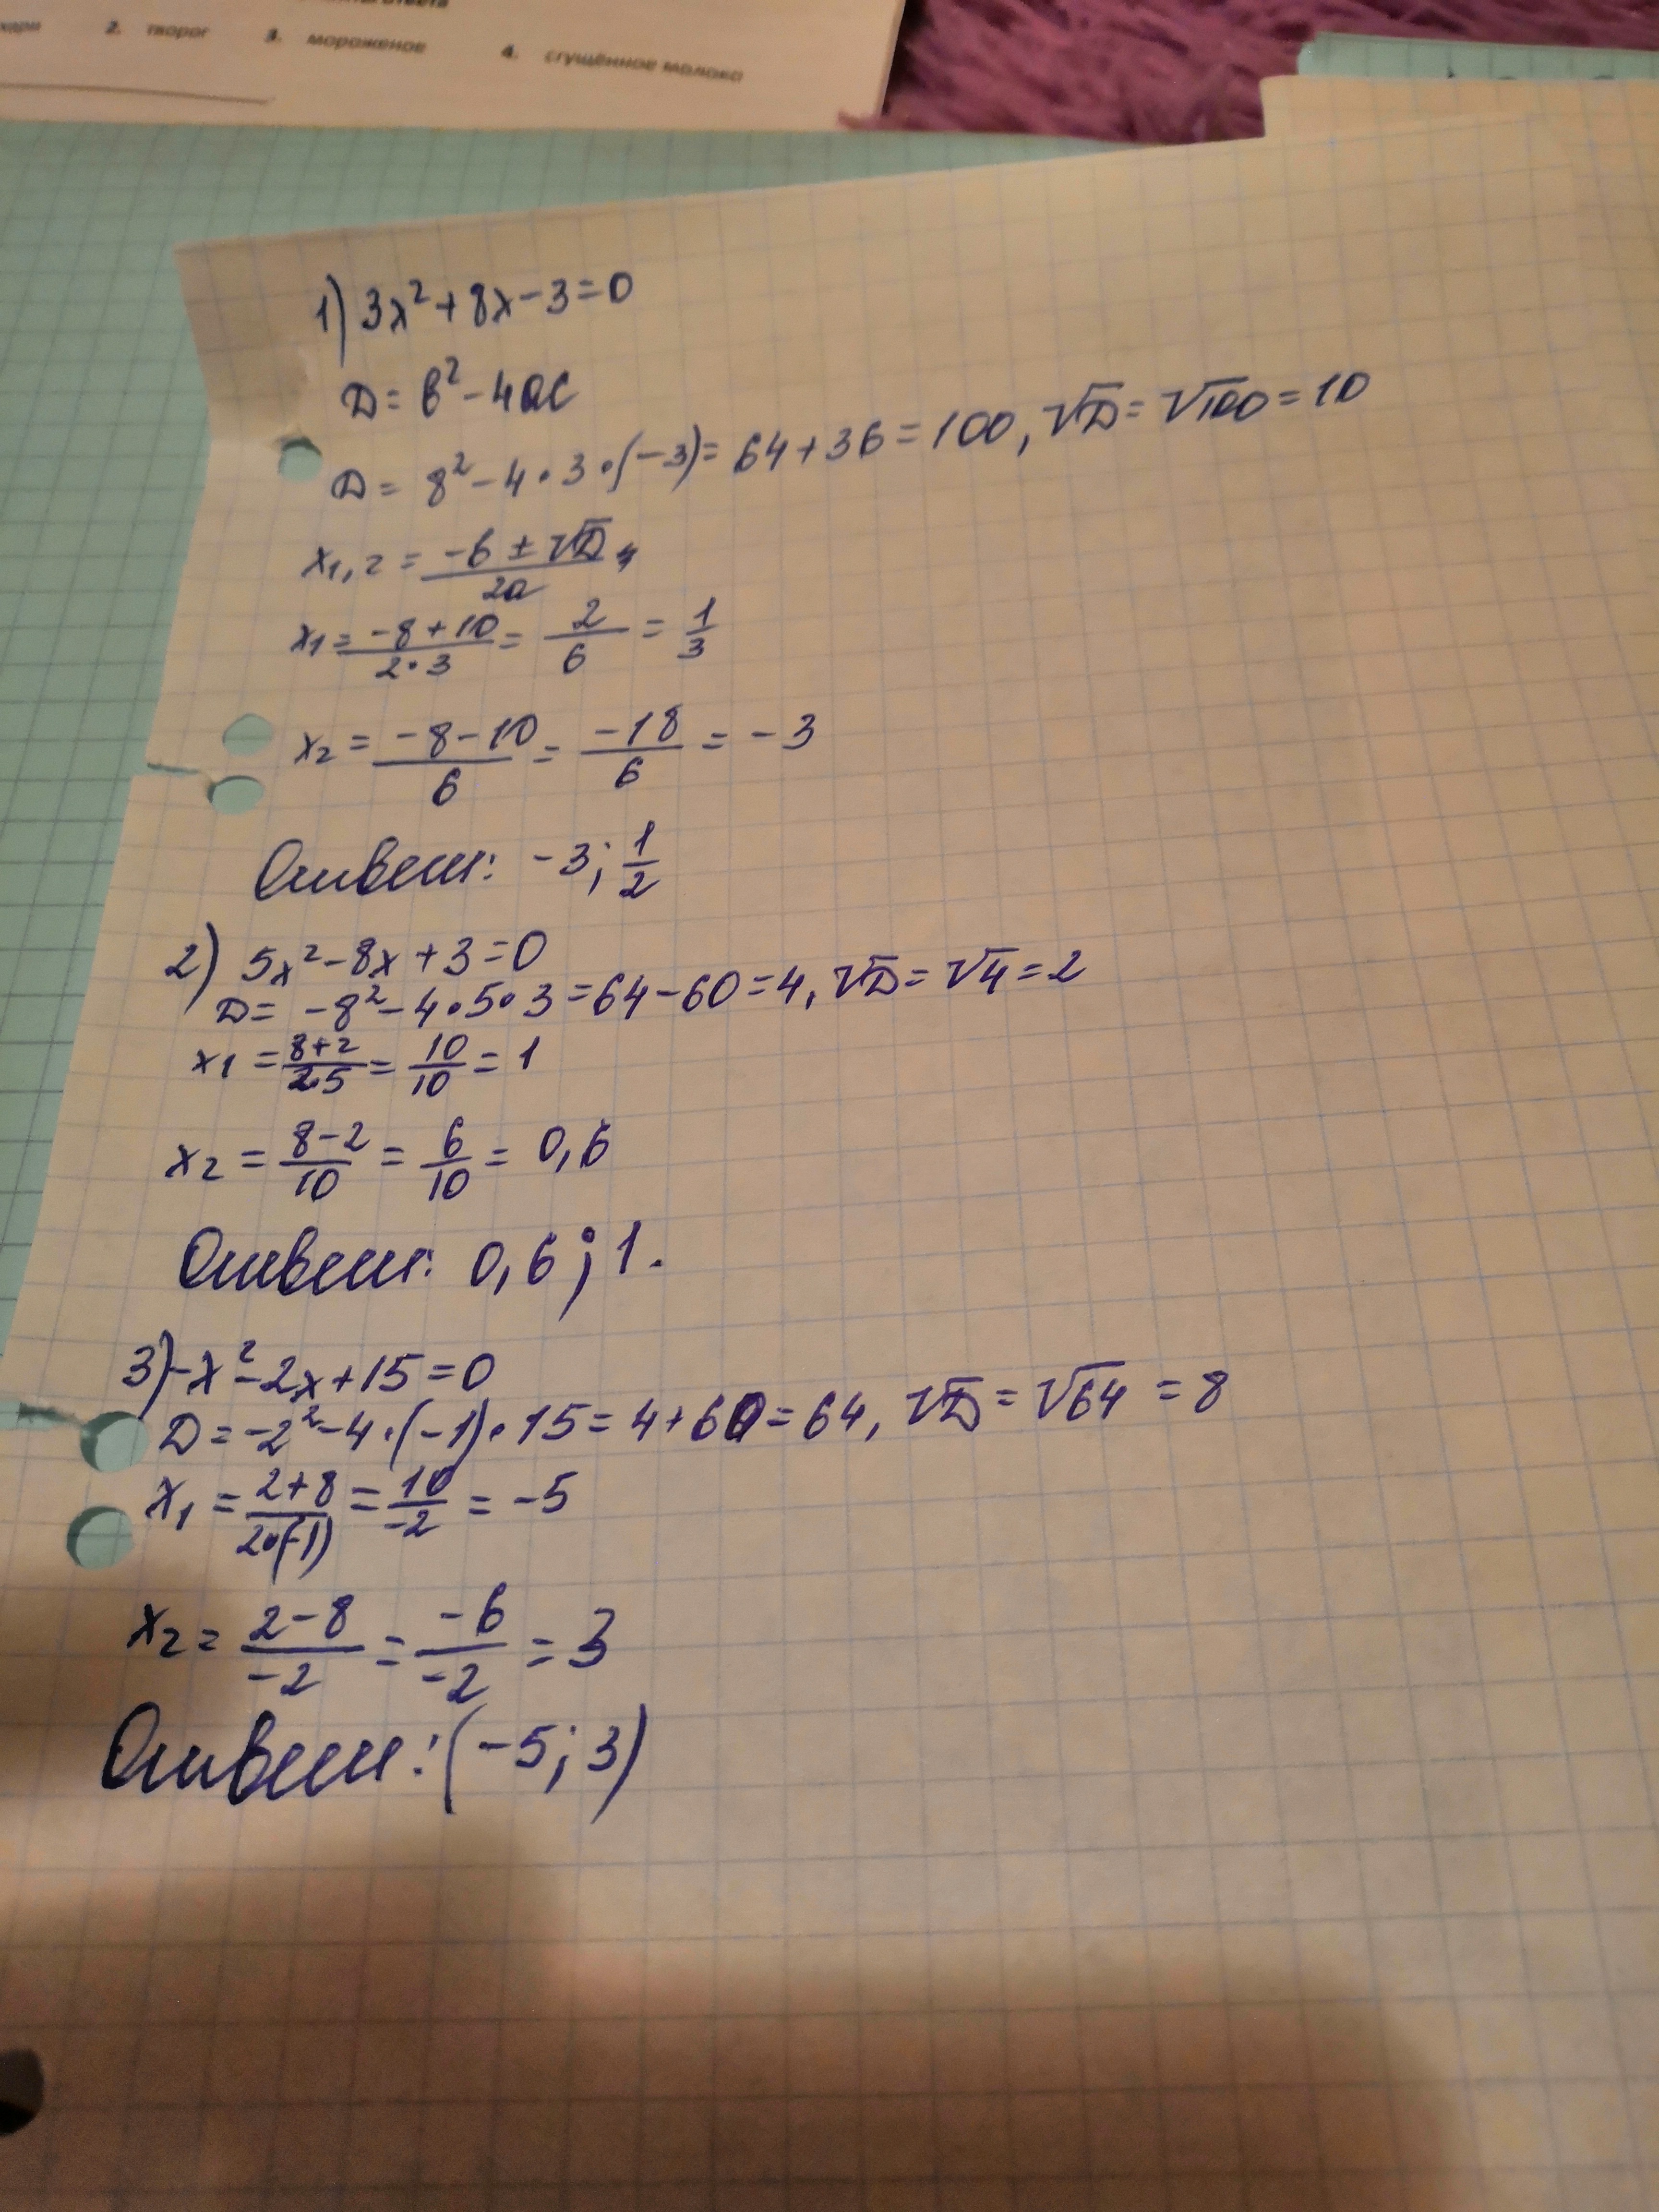 2. творог 3. мороженое 4. сгущённое молоко
1) 3x² + 8x - 3 = 0
D = b² - 4ac
D = 8² - 4 · 3 · (-3) = 64 + 36 = 100, √D = √100 = 10
x1,2 = (-b ± √D)/2a
x1 = (-8 + 10)/(2 · 3) = 2/6 = 1/3
x2 = (-8 - 10)/6 = -18/6 = -3
Ответ: -3; 1/2
2) 5x² - 8x + 3 = 0
D = -8² - 4 · 5 · 3 = 64 - 60 = 4, √D = √4 = 2
x1 = (8 + 2)/(2 · 5) = 10/10 = 1
x2 = (8 - 2)/10 = 6/10 = 0,6
Ответ: 0,6; 1.
3) -x² - 2x + 15 = 0
D = -2² - 4 · (-1) · 15 = 4 + 60 = 64, √D = √64 = 8
x1 = (2 + 8)/(2 · (-1)) = 10/-2 = -5
x2 = (2 - 8)/-2 = -6/-2 = 3
Ответ: (-5; 3)